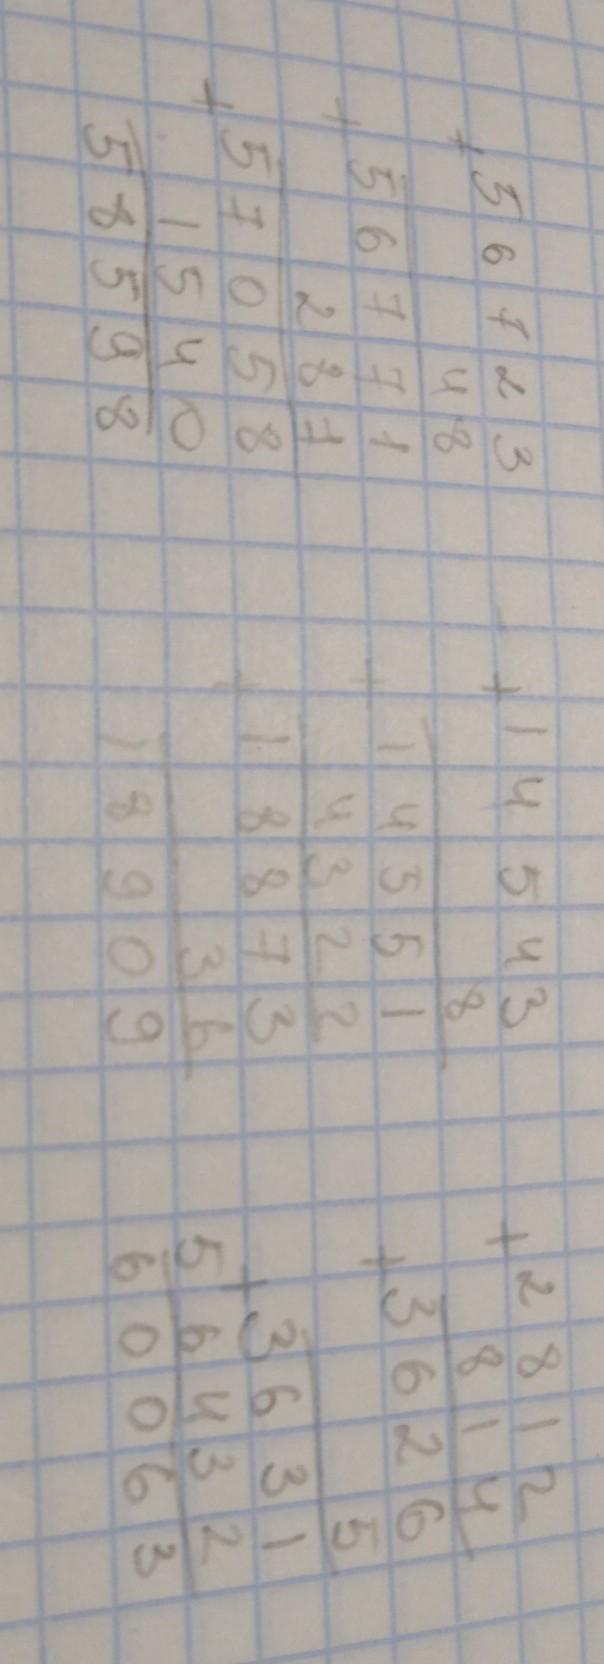 + 56723
48
+ 56771
287
+ 57058
1540
58598
+ 14543
8
+ 14551
4322
+ 18873
36
18909
+ 2812
814
+ 3626
5
+ 3631
56432
60063